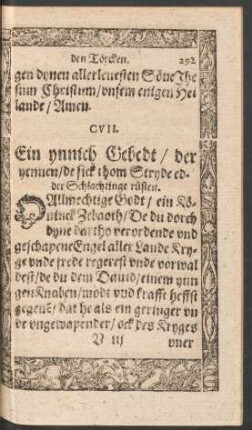 den Törcken. 292
gen dynen allerleuesten Söne Jhe
sum Christum/vnsem enigen Hei
lande/Amen.
CVII.
Ein ynnich Gebedt / der
yennen/de sick thom Stryde ed-
der Schlachtinge rüsten.
O Allmechtige Godt / ein Kö-
ninck Zebaoth/De du dorch
dyne dartho verordende vnd
geschapene Engel aller Lande Kry-
ge vnde frede regerest vnde vorwal
dest/de du dem Dauid/einem yun
gen Knaben/modt vnd krafft heffst
gegeuē/dat he als ein geringer vn
de vngewapender/ock des Kryges
V iij vner